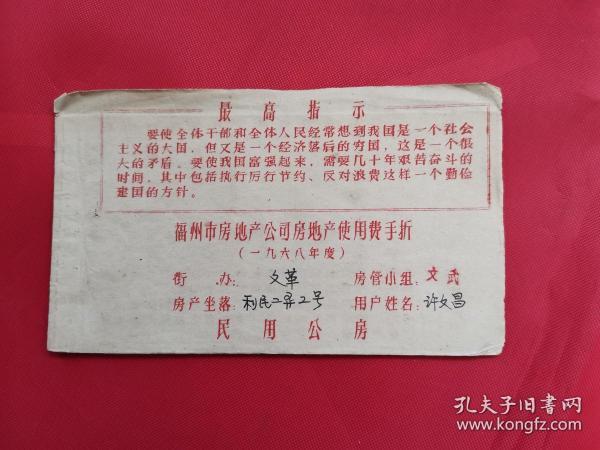 最高指示
要使全体干部和全体人民经常想到我国是一个社会
主义的大国，但又是一个经济落后的穷国，这是一个很
大的矛盾。要使我国富强起来，需要几十年艰苦奋斗的
时间，其中包括执行厉行节约、反对浪费这样一个勤俭
建国的方针。
福州市房地产公司房地产使用费手折
（一九六八年度）
街办：文革 房管小组：文武
房产坐落：利民二弄2号 用户姓名：许文昌
民用公房
孔夫子旧书网
www.kongfz.com